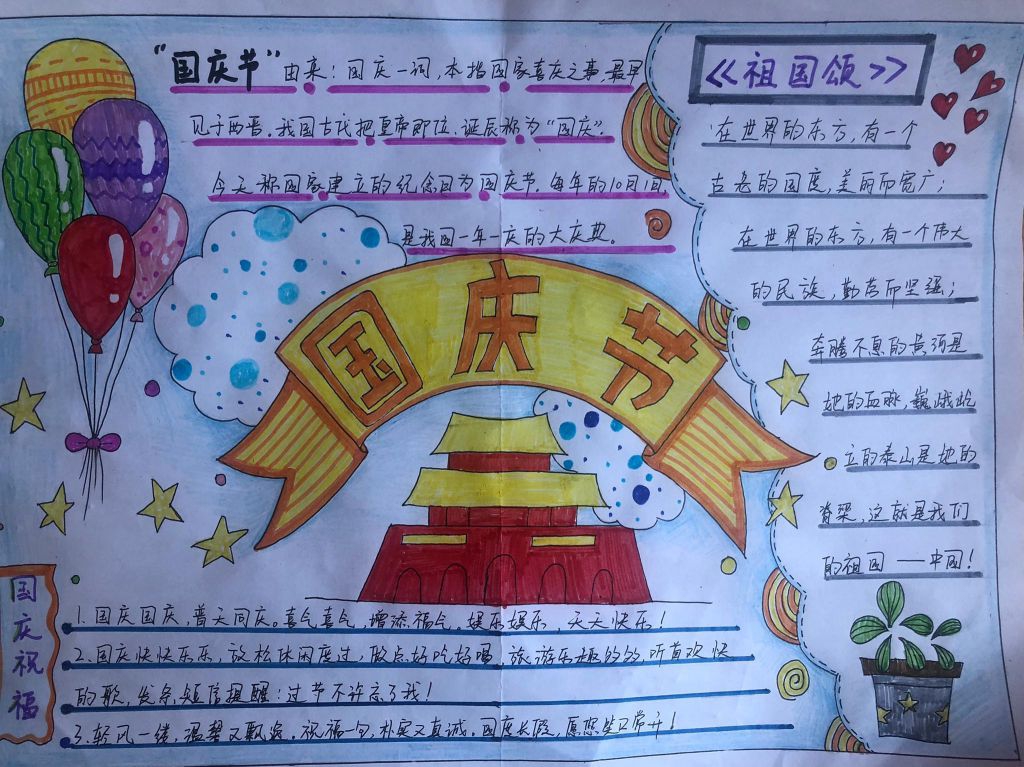 "国庆节"由来：国庆一词，本指国家喜庆之事，最早
见于西晋。我国古代把皇帝即位、诞辰称为"国庆"。
今天称国家建立的纪念日为国庆节，每年的10月1日，
是我国一年一庆的大庆典。
国庆节
《祖国颂》
在世界的东方，有一个
古老的国度，美丽而宽广；
在世界的东方，有一个伟大
的民族，勤劳而坚强；
奔腾不息的黄河是
她的血脉，巍峨屹
立的泰山是她的
脊梁，这就是我们
的祖国——中国！
国庆祝福
1、国庆国庆，普天同庆。喜气喜气，增添福气，娱乐娱乐，天天快乐！
2、国庆快快乐乐，放松休闲度过，做点好吃好喝，旅游乐趣多多，听首欢快
的歌，发条短信提醒：过节不许忘了我！
3、轻风一缕，温馨又飘逸。祝福一句，朴实又真诚。国庆长假，愿您笑口常开！